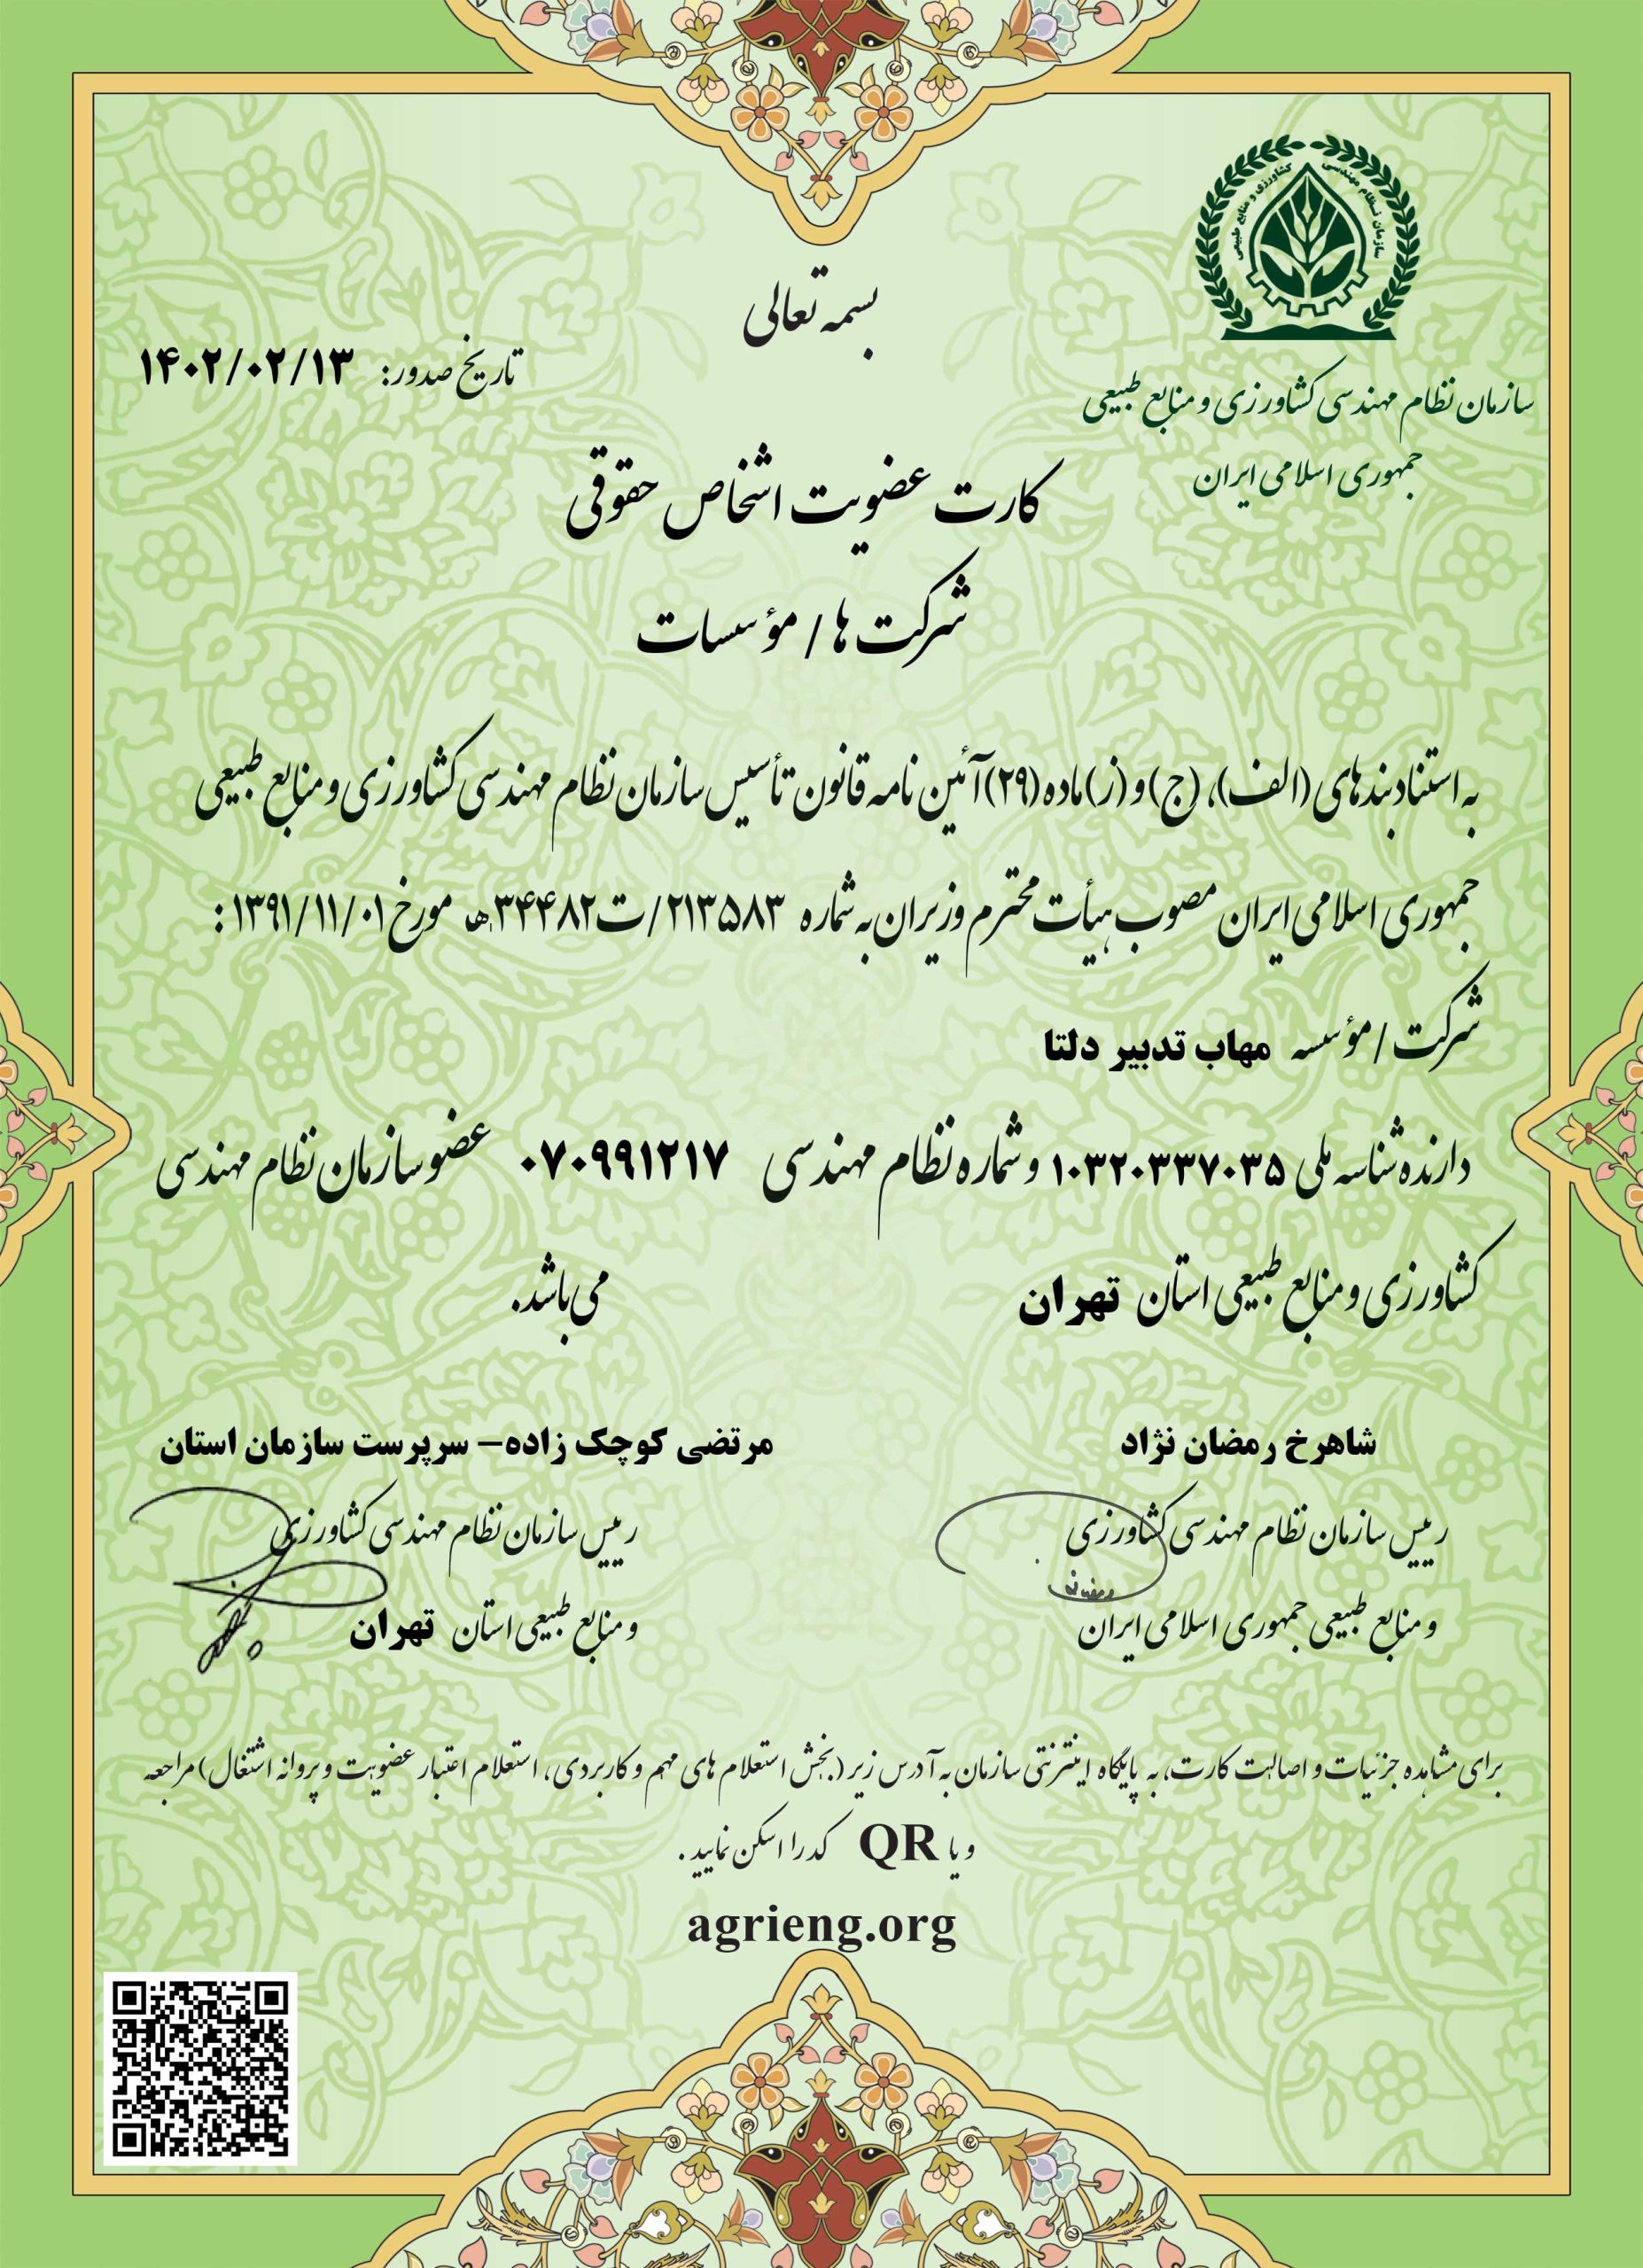 سازمان نظام مهندسی کشاورزی و منابع طبیعی
بسمه تعالی
تاریخ صدور: ۱۴۰۲/۰۲/۱۳
سازمان نظام مهندسی کشاورزی و منابع طبیعی
جمهوری اسلامی ایران
کارت عضویت اشخاص حقوقی
شرکت ها / مؤسسات
به استناد بندهای (الف)، (ج) و (ز) ماده (۲۹) آئین نامه قانون تأسیس سازمان نظام مهندسی کشاورزی و منابع طبیعی
جمهوری اسلامی ایران مصوب هیأت محترم وزیران به شماره ۲۱۳۵۸۳/ت۳۴۴۸۲ه‍ مورخ ۱۳۹۱/۱۱/۰۱ :
شرکت / مؤسسه مهاب تدبیر دلتا
دارنده شناسه ملی ۱۰۳۲۰۳۳۷۰۳۵ و شماره نظام مهندسی ۰۷۰۹۹۱۲۱۷ عضو سازمان نظام مهندسی
کشاورزی و منابع طبیعی استان تهران می باشد.
شاهرخ رمضان نژاد
رییس سازمان نظام مهندسی کشاورزی
و منابع طبیعی جمهوری اسلامی ایران
مرتضی کوچک زاده- سرپرست سازمان استان
رییس سازمان نظام مهندسی کشاورزی
و منابع طبیعی استان تهران
برای مشاهده جزئیات و اصالت کارت، به پایگاه اینترنتی سازمان به آدرس زیر (بخش استعلام های مهم و کاربردی، استعلام اعتبار عضویت و پروانه اشتغال) مراجعه
و یا QR کد را اسکن نمایید .
agrieng.org